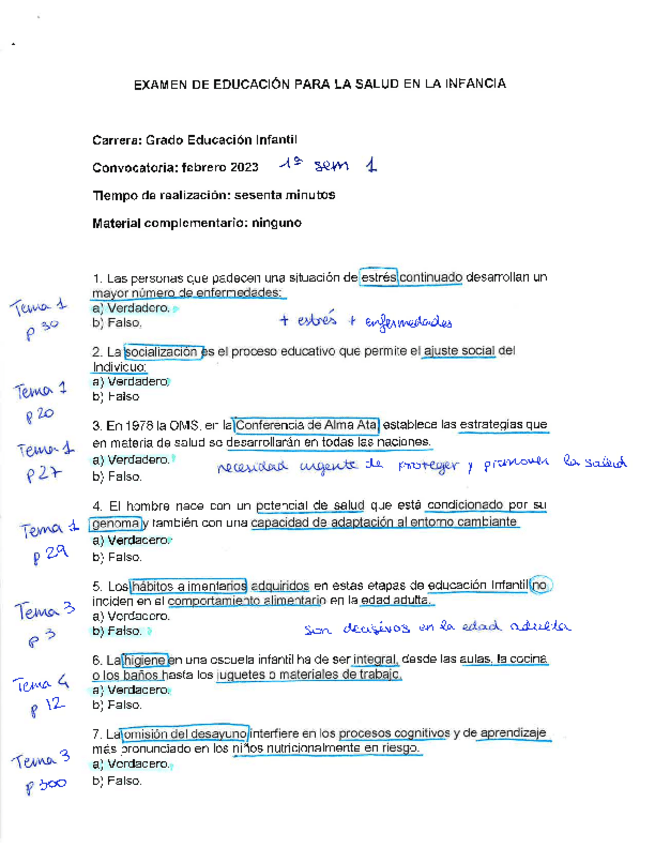 EXAMEN DE EDUCACIÓN PARA LA SALUD EN LA INFANCIA
Carrera: Grado Educación Infantil
Convocatoria: febrero 2023 1º sem 1
Tiempo de realización: sesenta minutos
Material complementario: ninguno
1. Las personas que padecen una situación de estrés continuado desarrollan un
mayor número de enfermedades:
Tema 1
p 30
a) Verdadero.
b) Falso.
+ estrés + enfermedades
2. La socialización es el proceso educativo que permite el ajuste social del
Individuo:
Tema 1
p 20
a) Verdadero
b) Falso
3. En 1978 la OMS, en la Conferencia de Alma Ata, establece las estrategias que
en materia de salud se desarrollarán en todas las naciones.
Tema 1
p 27
a) Verdadero.
b) Falso.
necesidad urgente de proteger y promover la salud
4. El hombre nace con un potencial de salud que está condicionado por su
genoma y también con una capacidad de adaptación al entorno cambiante
Tema 1
p 29
a) Verdadero.
b) Falso.
5. Los hábitos alimentarios adquiridos en estas etapas de educación Infantil no
inciden en el comportamiento alimentario en la edad adulta.
Tema 3
p 3
a) Verdadero.
b) Falso.
son decisivos en la edad adulta
6. La higiene en una escuela infantil ha de ser integral, desde las aulas, la cocina
o los baños hasta los juguetes o materiales de trabajo.
Tema 4
p 12
a) Verdadero.
b) Falso.
7. La omisión del desayuno interfiere en los procesos cognitivos y de aprendizaje
más pronunciado en los niños nutricionalmente en riesgo.
Tema 3
p 300
a) Verdadero.
b) Falso.